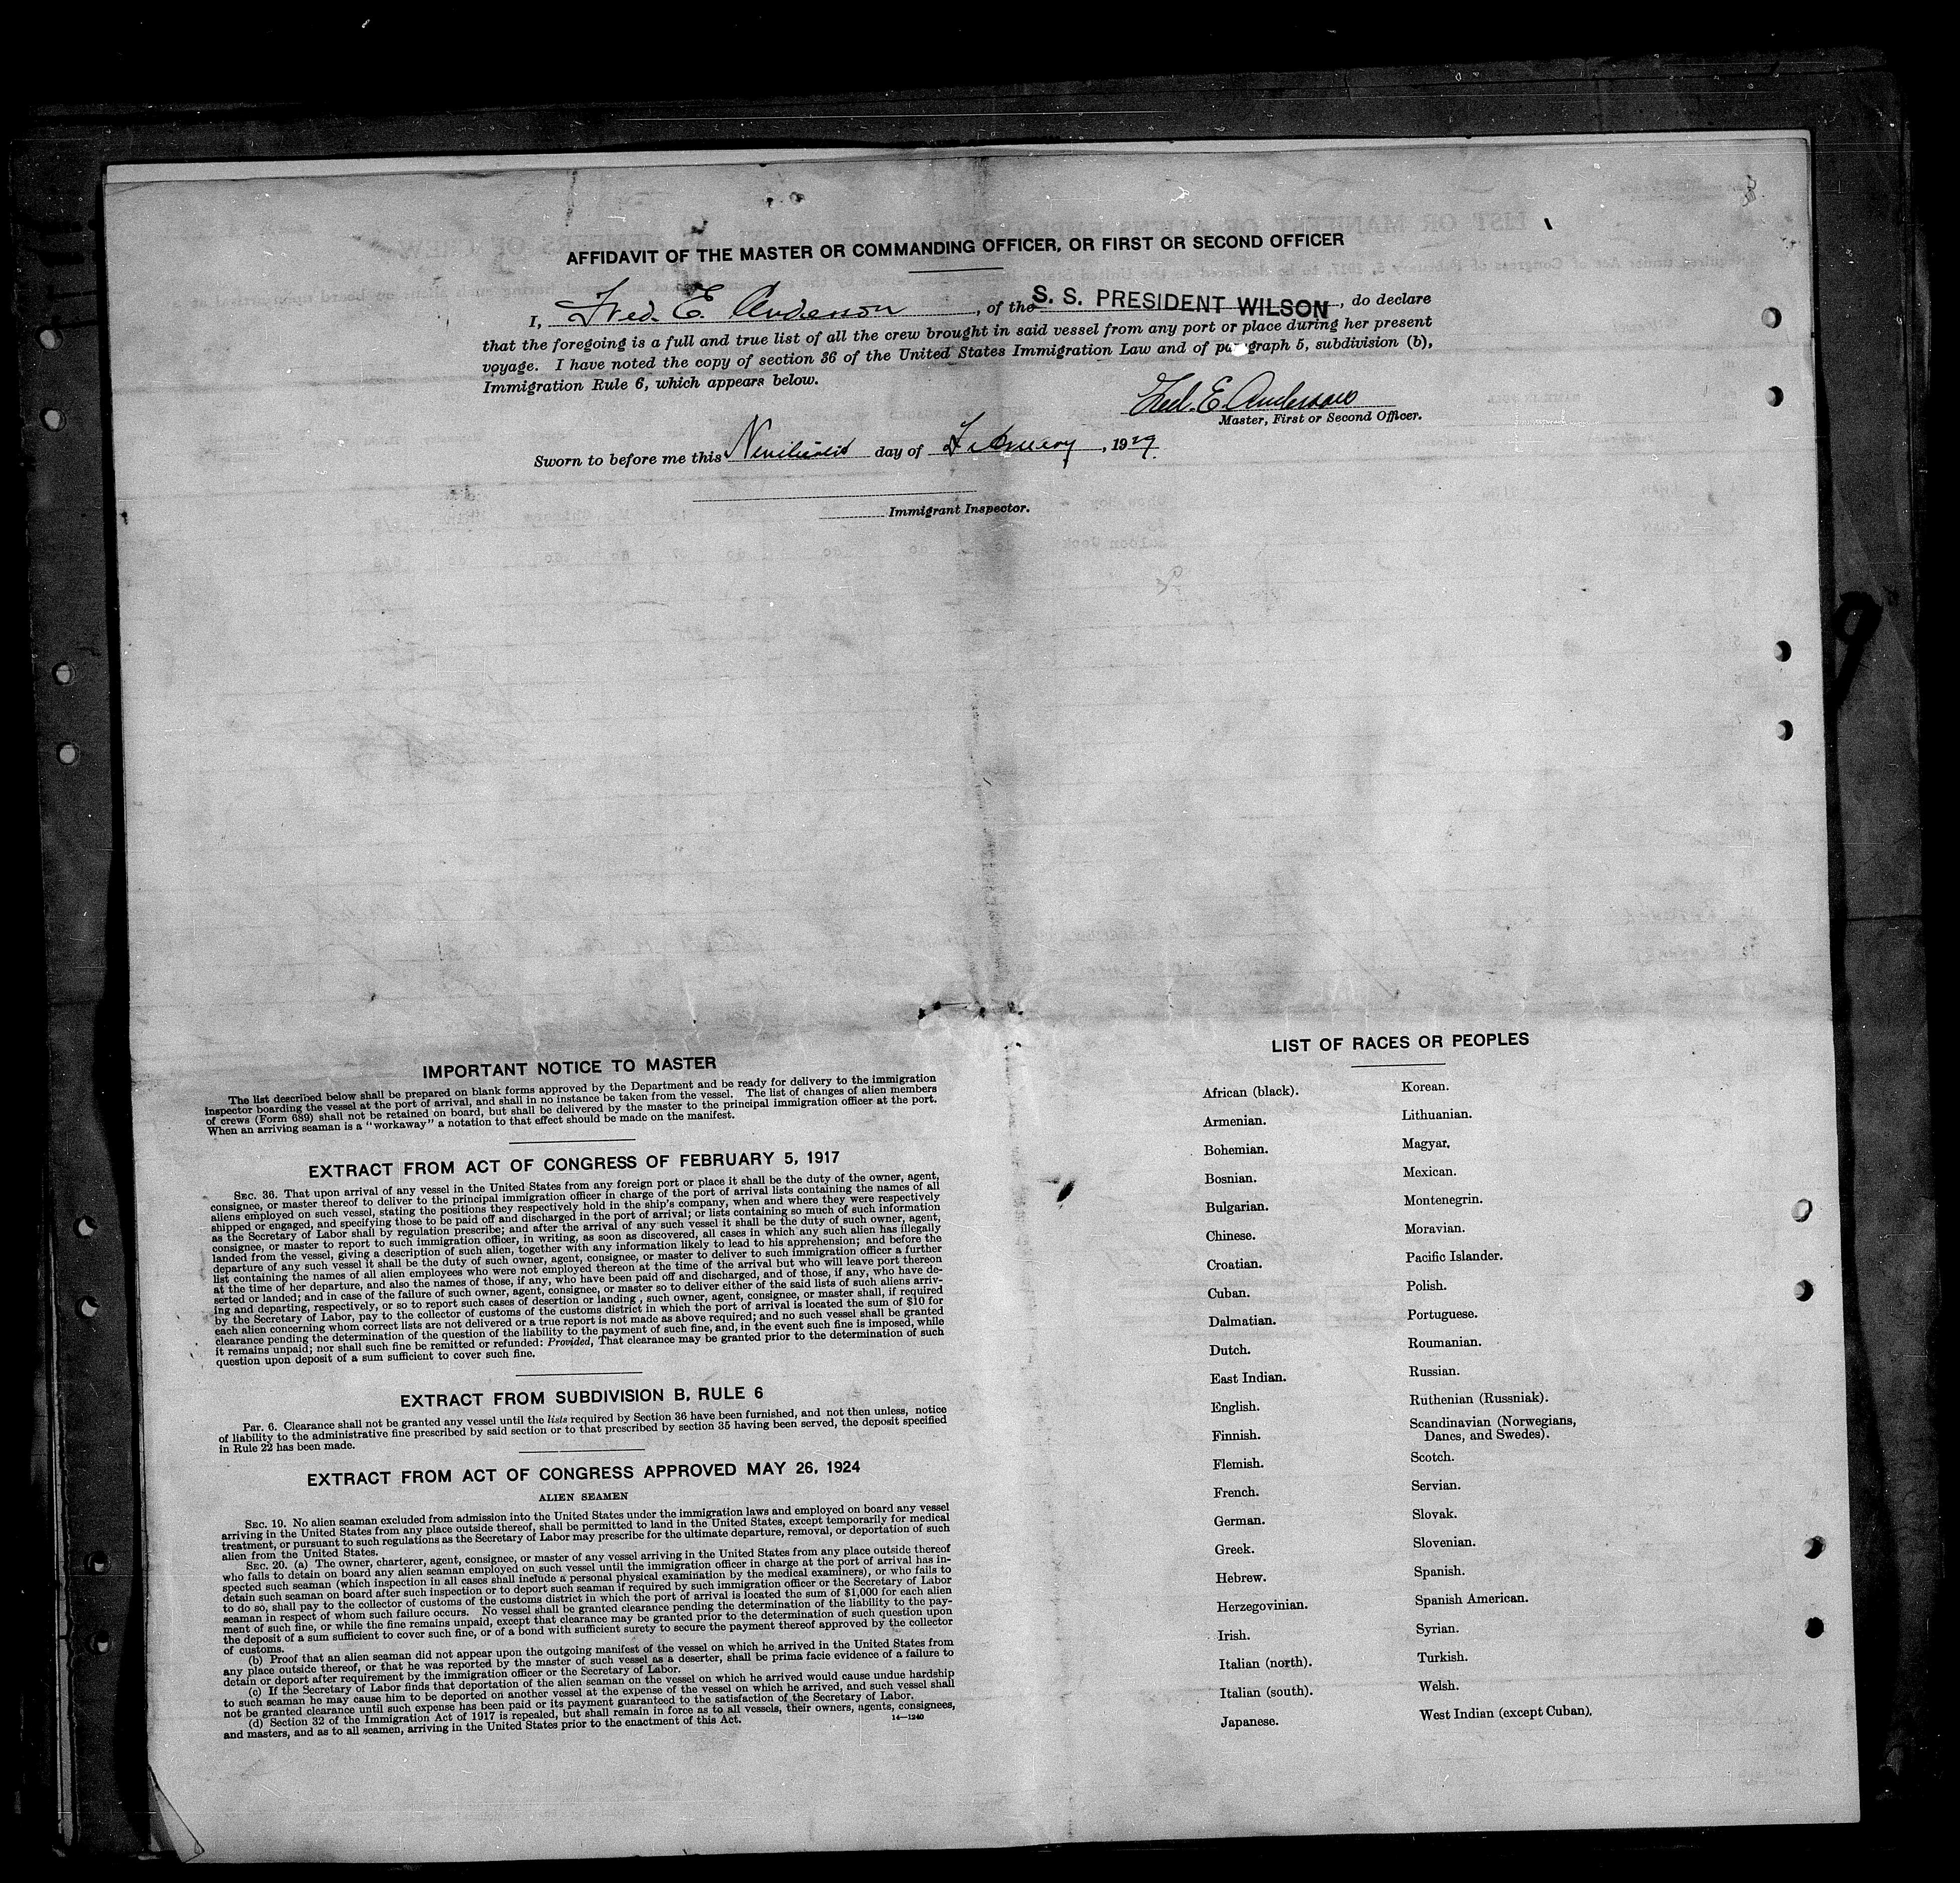 AFFIDAVIT OF THE MASTER OR COMMANDING OFFICER, OR FIRST OR SECOND OFFICER
I, Fred. E. Anderson, of the S. S. PRESIDENT WILSON, do declare
that the foregoing is a full and true list of all the crew brought in said vessel from any port or place during her present
voyage. I have noted the copy of section 36 of the United States Immigration Law and of paragraph 5, subdivision (b),
Immigration Rule 6, which appears below.
Fred. E. Anderson
Master, First or Second Officer.
Sworn to before me this day of February, 1929.
Immigrant Inspector.
9
IMPORTANT NOTICE TO MASTER
The list described below shall be prepared on blank forms approved by the Department and be ready for delivery to the immigration
inspector boarding the vessel at the port of arrival, and shall in no instance be taken from the vessel. The list of changes of alien members
of crews (Form 689) shall not be retained on board, but shall be delivered by the master to the principal immigration officer at the port.
When an arriving seaman is a "workaway" a notation to that effect should be made on the manifest.
EXTRACT FROM ACT OF CONGRESS OF FEBRUARY 5, 1917
SEC. 36. That upon arrival of any vessel in the United States from any foreign port or place it shall be the duty of the owner, agent,
consignee, or master thereof to deliver to the principal immigration officer in charge of the port of arrival lists containing the names of all
aliens employed on such vessel, stating the positions they respectively hold in the ship's company, when and where they were respectively
shipped or engaged, and specifying those to be paid off and discharged in the port of arrival; or lists containing so much of such information
as the Secretary of Labor shall by regulation prescribe; and after the arrival of any such vessel it shall be the duty of such owner, agent,
consignee, or master to report to such immigration officer, in writing, as soon as discovered, all cases in which any such alien has illegally
landed from the vessel, giving a description of such alien, together with any information likely to lead to his apprehension; and before the
departure of any such vessel it shall be the duty of such owner, agent, consignee, or master to deliver to such immigration officer a further
list containing the names of all alien employees who were not employed thereon at the time of the arrival but who will leave port thereon
at the time of her departure, and also the names of those, if any, who have been paid off and discharged, and of those, if any, who have de-
serted or landed; and in case of the failure of such owner, agent, consignee, or master so to deliver either of the said lists of such aliens arriv-
ing and departing, respectively, or so to report such cases of desertion or landing, such owner, agent, consignee, or master shall, if required
by the Secretary of Labor, pay to the collector of customs of the customs district in which the port of arrival is located the sum of $10 for
each alien concerning whom correct lists are not delivered or a true report is not made as above required; and no such vessel shall be granted
clearance pending the determination of the question of the liability to the payment of such fine, and, in the event such fine is imposed, while
it remains unpaid; nor shall such fine be remitted or refunded: Provided, That clearance may be granted prior to the determination of such
question upon deposit of a sum sufficient to cover such fine.
EXTRACT FROM SUBDIVISION B, RULE 6
Par. 6. Clearance shall not be granted any vessel until the lists required by Section 36 have been furnished, and not then unless, notice
of liability to the administrative fine prescribed by said section or to that prescribed by section 35 having been served, the deposit specified
in Rule 22 has been made.
EXTRACT FROM ACT OF CONGRESS APPROVED MAY 26, 1924
ALIEN SEAMEN
SEC. 19. No alien seaman excluded from admission into the United States under the immigration laws and employed on board any vessel
arriving in the United States from any place outside thereof, shall be permitted to land in the United States, except temporarily for medical
treatment, or pursuant to such regulations as the Secretary of Labor may prescribe for the ultimate departure, removal, or deportation of such
alien from the United States.
SEC. 20. (a) The owner, charterer, agent, consignee, or master of any vessel arriving in the United States from any place outside thereof
who fails to detain on board any alien seaman employed on such vessel until the immigration officer in charge at the port of arrival has in-
spected such seaman (which inspection in all cases shall include a personal physical examination by the medical examiners), or who fails to
detain such seaman on board after such inspection or to deport such seaman if required by such immigration officer or the Secretary of Labor
to do so, shall pay to the collector of customs of the customs district in which the port of arrival is located the sum of $1,000 for each alien
seaman in respect of whom such failure occurs. No vessel shall be granted clearance pending the determination of the liability to the pay-
ment of such fine, or while the fine remains unpaid, except that clearance may be granted prior to the determination of such question upon
the deposit of a sum sufficient to cover such fine, or of a bond with sufficient surety to secure the payment thereof approved by the collector
of customs.
(b) Proof that an alien seaman did not appear upon the outgoing manifest of the vessel on which he arrived in the United States from
any place outside thereof, or that he was reported by the master of such vessel as a deserter, shall be prima facie evidence of a failure to
detain or deport after requirement by the immigration officer or the Secretary of Labor.
(c) If the Secretary of Labor finds that deportation of the alien seaman on the vessel on which he arrived would cause undue hardship
to such seaman he may cause him to be deported on another vessel at the expense of the vessel on which he arrived, and such vessel shall
not be granted clearance until such expense has been paid or its payment guaranteed to the satisfaction of the Secretary of Labor.
(d) Section 32 of the Immigration Act of 1917 is repealed, but shall remain in force as to all vessels, their owners, agents, consignees,
and masters, and as to all seamen, arriving in the United States prior to the enactment of this Act.
14—1240
LIST OF RACES OR PEOPLES
African (black).
Armenian.
Bohemian.
Bosnian.
Bulgarian.
Chinese.
Croatian.
Cuban.
Dalmatian.
Dutch.
East Indian.
English.
Finnish.
Flemish.
French.
German.
Greek.
Hebrew.
Herzegovinian.
Irish.
Italian (north).
Italian (south).
Japanese.
Korean.
Lithuanian.
Magyar.
Mexican.
Montenegrin.
Moravian.
Pacific Islander.
Polish.
Portuguese.
Roumanian.
Russian.
Ruthenian (Russniak).
Scandinavian (Norwegians,
Danes, and Swedes).
Scotch.
Servian.
Slovak.
Slovenian.
Spanish.
Spanish American.
Syrian.
Turkish.
Welsh.
West Indian (except Cuban).